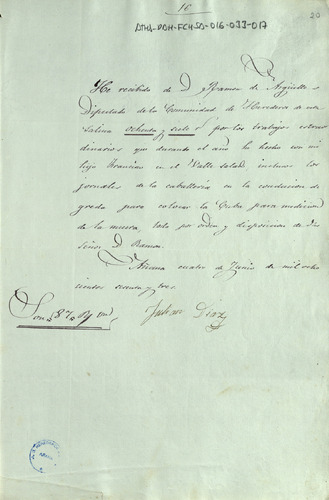 10
20
ATHA-DAH-FCHSD-016-033-017
He recibido de D. Ramon de Argüelles
Diputado de la Comunidad de Herederos de esta
Salina ochenta y siete rs. por los trabajos estraor
dinarios que durante el año he hecho con mi
hijo Francisco en el Valle Salado, inclusos los
jornales de la caballeria en la conducion de
greda para colocar la Cuba para medicion
de la muera, todo por orden y disposicion de dho
Señor D. Ramon.
Añana cuatro de Junio de mil ocho
cientos cuenta y tres.
Son 87 rs vn
Julian Diaz